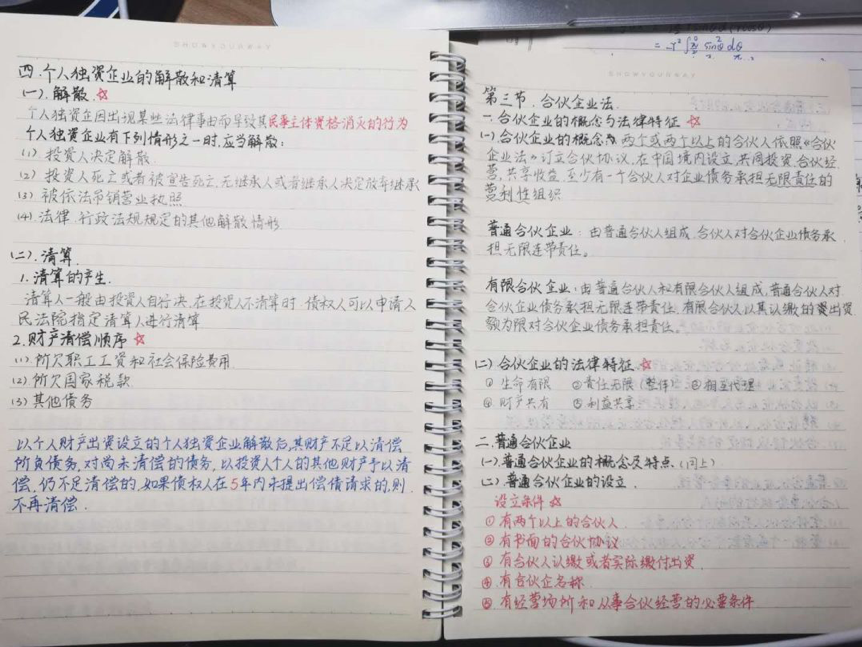 SHOWYOURWAY
四.个人独资企业的解散和清算
(一).解散.☆
个人独资企因出现某些法律事由而导致其民事主体资格消灭的行为
个人独资企业有下列情形之一时,应当解散:
(1) 投资人决定解散
(2) 投资人死亡或者被宣告死亡,无继承人或者继承人决定放弃继承
(3) 被依法吊销营业执照
(4) 法律.行政法规规定的其他解散情形
(二).清算
1.清算的产生.
清算人一般由投资人自行决.在投资人不清算时 债权人可以申请人
民法院指定清算人进行清算
2.财产清偿顺序 ☆
(1) 所欠职工工资和社会保险费用
(2) 所欠国家税款
(3) 其他债务
以个人财产出资设立的个人独资企业解散后,其财产不足以清偿
所负债务,对尚未清偿的债务,以投资人个人的其他财产予以清
偿,仍不足清偿的,如果债权人在5年内未提出偿债请求的,则
不再清偿.
SHOWYOURWAY
第三节.合伙企业法.
一.合伙企业的概念与法律特征 ☆
(一).合伙企业的概念 两个或两个以上的合伙人依照《合伙
企业法》订立合伙协议,在中国境内设立,共同投资,合伙经
营,共享收益,至少有一个合伙人对企业债务承担无限责任的
营利性组织
普通合伙企业:由普通合伙人组成,合伙人对合伙企业债务承
担无限连带责任。
有限合伙企业:由普通合伙人和有限合伙人组成,普通合伙人对
合伙企业债务承担无限连带责任,有限合伙人以其认缴的出资
额为限对合伙企业债务承担责任。
(二)合伙企业的法律特征 ☆
① 生命有限 ② 责任无限(整体) ③ 相互代理
④ 财产共有 ⑤ 利益共享
二.普通合伙企业
(一).普通合伙企业的概念及特点.(同上)
(二).普通合伙企业的设立.
设立条件 ☆
① 有两个以上的合伙人
② 有书面的合伙协议
③ 有合伙人认缴或者实际缴付出资
④ 有合伙企名称
⑤ 有经营场所和从事合伙经营的必要条件